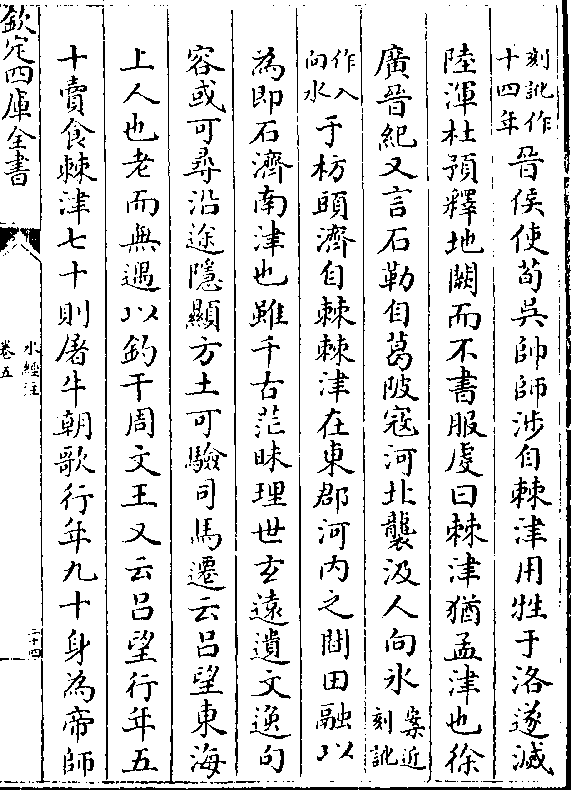 刻訛作十四年晉侯使荀吳帥師涉自棘津用牲于洛遂滅
陸渾杜預釋地闕而不書服虔曰棘津猶孟津也徐
廣晉紀又言石勒自葛陂寇河北襲汲人向氷案近刻訛
作入向水于枋頭濟自棘棘津在東郡河內之間田融以
為即石濟南津也雖千古茫昧理世玄遠遺文逸句
容或可尋沿途隱顯方土可驗司馬遷云吕望東海
上人也老而無遇以釣干周文王又云吕望行年五
十賣食棘津七十則屠牛朝歌行年九十身為帝師
欽定四庫全書
水經注
卷五
二十四